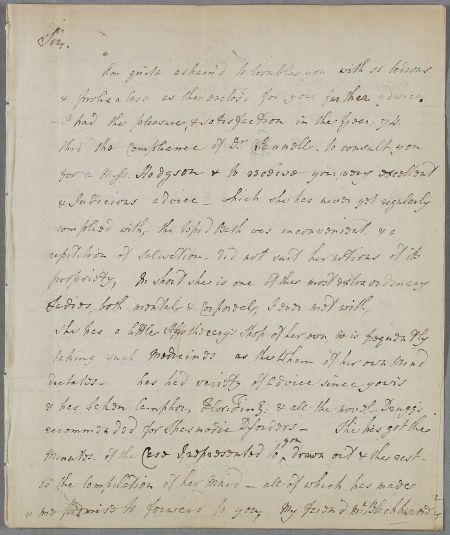 Sir,
Am quite asham'd to trouble you with so tedious
& prolix a case as the enclos'd for your farther advice.
- I had the pleasure, & satisfaction in the year, 74.
thro the Complacence of Dr to consult you
for a Miss. Hodgson & to receive your very excellent
& Judicious advice - which she has never yet regularly
complied with, the tepid Bath was inconvenient & a
repitition of salivation - did not suit her notions of its
propriety, In short she is one of the most extraordinary
Ladies, both mentaly & Corporealy, I ever met with,
She has a little Apothicary's shop of her own, & is frequently
taking such Medicines as the whim of her own Mind
dictates - has had variety of advice since yours
& has taken Camphor, & all the novel Druggs
recommended for Spasmodic Disorders - She has got the
minutes of the Case I represented to you drawn out & the rest -
is the compilation of her Maid - all of which has made
me promise to forward to you, My friend Mr Blackburne